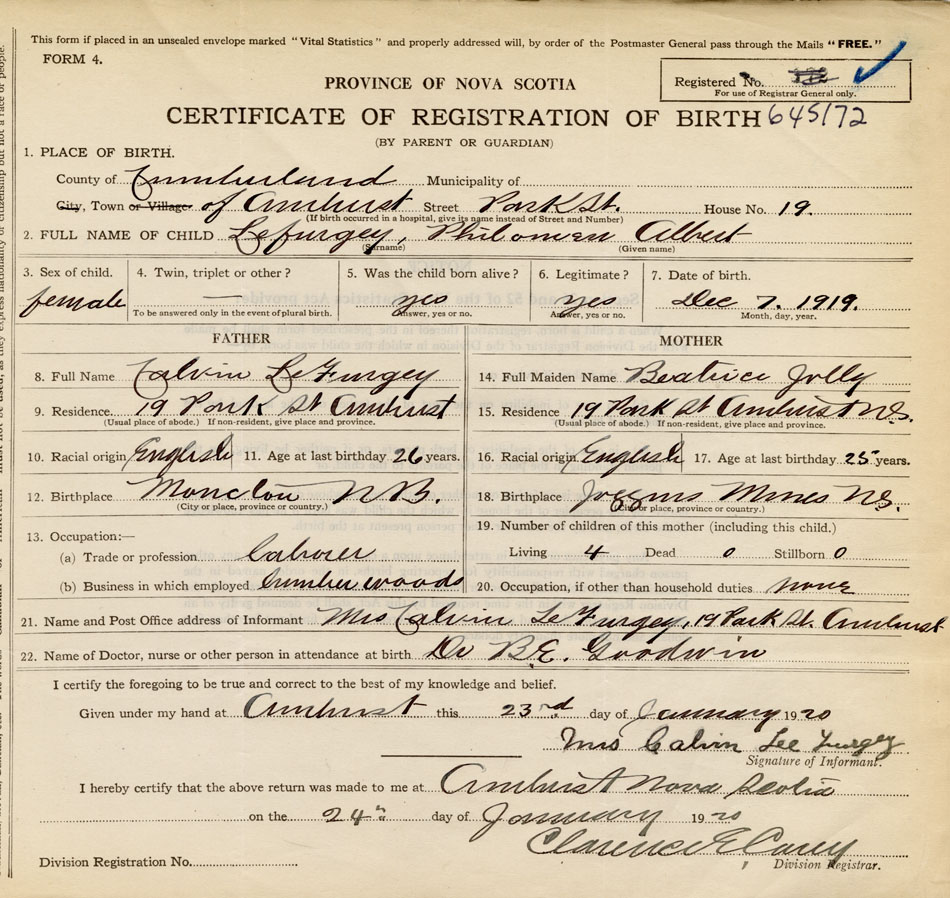 This form if placed in an unsealed envelope marked "Vital Statistics" and properly addressed will, by order of the Postmaster General pass through the Mails "FREE."
FORM 4.
Registered No.
For use of Registrar General only.
PROVINCE OF NOVA SCOTIA
CERTIFICATE OF REGISTRATION OF BIRTH 645172
(BY PARENT OR GUARDIAN)
1. PLACE OF BIRTH.
County of Cumberland Municipality of
City, Town or Village of Amherst Street Park St. House No. 19.
(If birth occurred in a hospital, give its name instead of Street and Number)
2. FULL NAME OF CHILD Lefurgey, Philomen Albert
(Surname) (Given name)
3. Sex of child. 4. Twin, triplet or other? 5. Was the child born alive? 6. Legitimate? 7. Date of birth.
female — yes yes Dec 7. 1919.
To be answered only in the event of plural birth. Answer, yes or no. Answer, yes or no. Month, day, year.
FATHER MOTHER
8. Full Name Calvin LeFurgey 14. Full Maiden Name Beatrice Jolly
9. Residence. 19 Park St Amherst 15. Residence 19 Park St Amherst N.S.
(Usual place of abode.) If non-resident, give place and province. (Usual place of abode.) If non-resident, give place and province.
10. Racial origin English 11. Age at last birthday 26 years. 16. Racial origin English 17. Age at last birthday 25 years.
12. Birthplace Moncton N.B. 18. Birthplace Joggins Mines N.S.
(City or place, province or country.) (City or place, province or country.)
13. Occupation:— 19. Number of children of this mother (including this child.)
(a) Trade or profession laborer Living 4 Dead 0 Stillborn 0
(b) Business in which employed lumber woods 20. Occupation, if other than household duties none
21. Name and Post Office address of Informant Mrs Calvin LeFurgey, 19 Park St. Amherst
22. Name of Doctor, nurse or other person in attendance at birth Dr B.E. Goodwin
I certify the foregoing to be true and correct to the best of my knowledge and belief.
Given under my hand at Amherst this 23rd day of January 1920
Mrs Calvin Lee Furgey
Signature of Informant.
I hereby certify that the above return was made to me at Amherst Nova Scotia
on the 24th day of January 1920
Clarence E Casey
Division Registration No. Division Registrar.